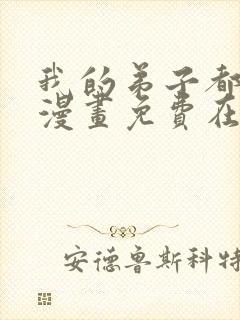 我的弟子都
漫畫免費在
安德魯斯科特